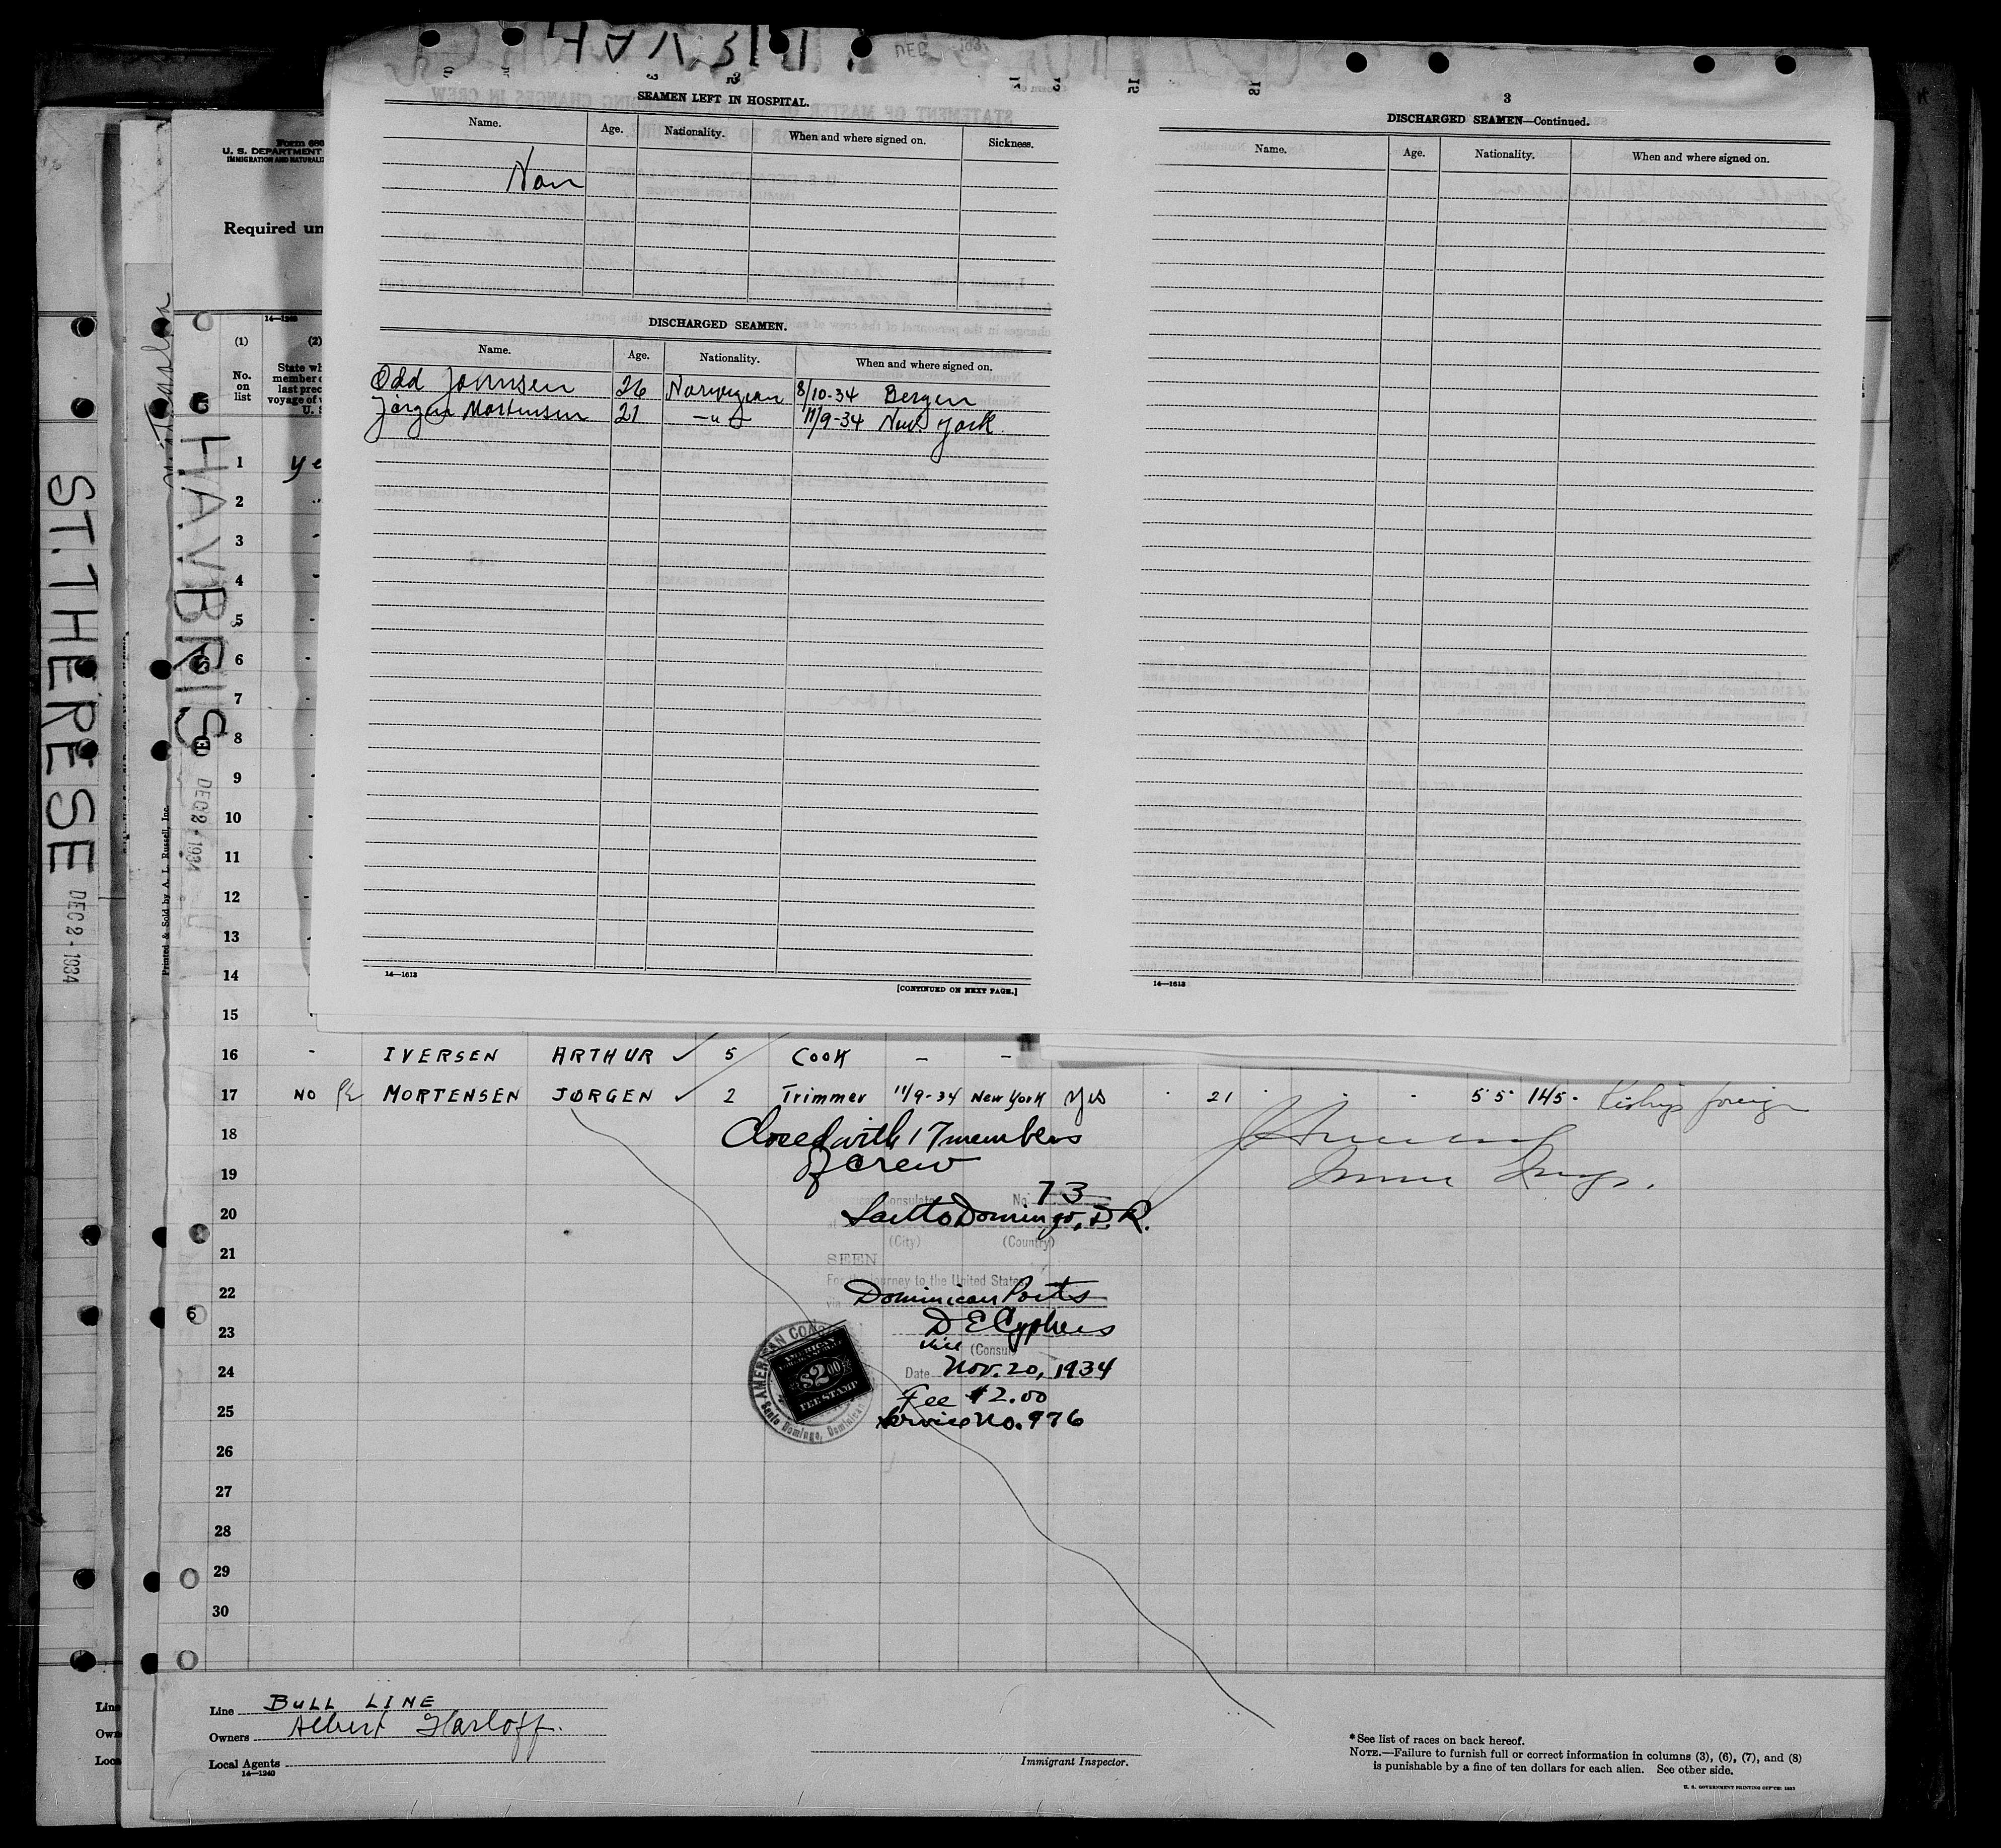 SEAMEN LEFT IN HOSPITAL.
Name. Age. Nationality. When and where signed on. Sickness.
Non
DISCHARGED SEAMEN.
Name. Age. Nationality. When and where signed on.
Odd Johnsen 26 Norwegian 8/10-34 Bergen
Jörgen Mortensen 21 -"- 11/9-34 New York
14—1613
[CONTINUED ON NEXT PAGE.]
3
DISCHARGED SEAMEN—Continued.
Name. Age. Nationality. When and where signed on.
14—1613
ST. THERESE
DEC 2 - 1934
HAVBRIS
DEC 2 - 1934
Printed & Sold by A. L. Russell, Inc.
Form 680
U. S. DEPARTMENT
IMMIGRATION AND NATURALIZ
Required un
14—1240
(1) (2)
No. on list
State wh
member o
last prec
voyage of v
U. S
1 ye
2
3
4
5
6
7
8
9
10
11
12
13
14
15
16 - IVERSEN ARTHUR ✓ 5 COOK - -
17 NO MORTENSEN JØRGEN ✓ 2 Trimmer 11/9-34 New York Yes 21 5'5" 145
18 Closed with 17 members
19 of crew
No. 73
20 Santo Domingo, D.R.
(City) (Country)
21 SEEN
For the journey to the United States
22 Dominican Ports
23 D E Cyphers
Vice (Consul)
24 Date Nov. 20, 1934
Fee $2.00
25 Service No. 976
AMERICAN
$2.00
FEE STAMP
AMERICAN CON
Santo Domingo, Dominican
26
27
28
29
30
Line BULL LINE
Owners Albert Harloff.
Local Agents
14—1240
Immigrant Inspector.
*See list of races on back hereof.
NOTE.—Failure to furnish full or correct information in columns (3), (6), (7), and (8)
is punishable by a fine of ten dollars for each alien. See other side.
U. S. GOVERNMENT PRINTING OFFICE: 1933
Line
Own
Loca